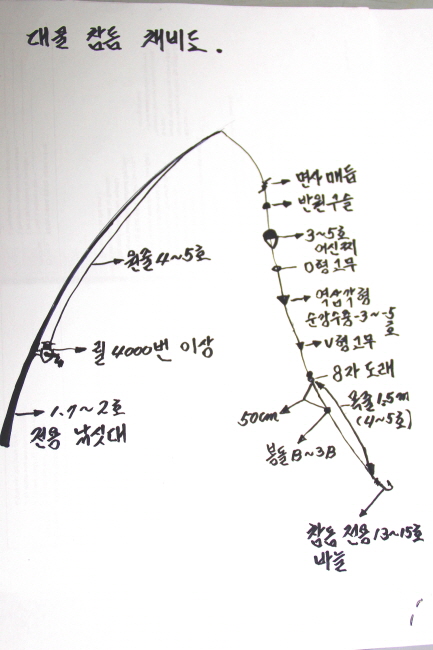 대물 참돔 채비도.
면사매듭
반원구슬
3~5호
어신찌
원줄 4~5호
O형고무
역삼각형
순강수용-3~-5
호
릴 4000번 이상
V형고무
8자 도래
1.7~2호
전용 낚싯대
50cm
목줄 1.5m
(4~5호)
봉돌 B~3B
참돔 전용 13~15호
바늘